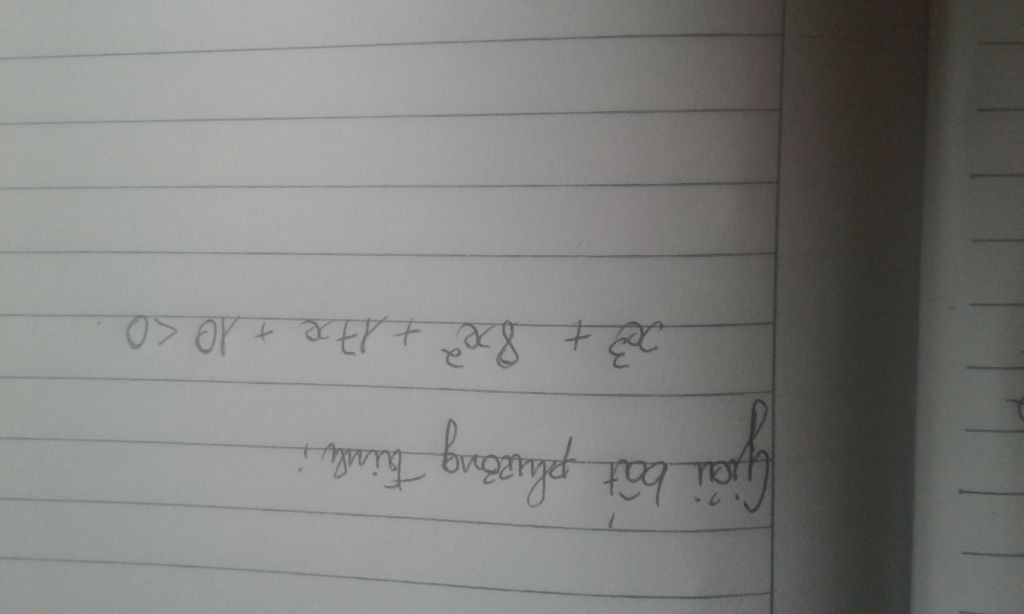 Giải bất phương trình:
x³ + 8x² + 17x + 10 < 0